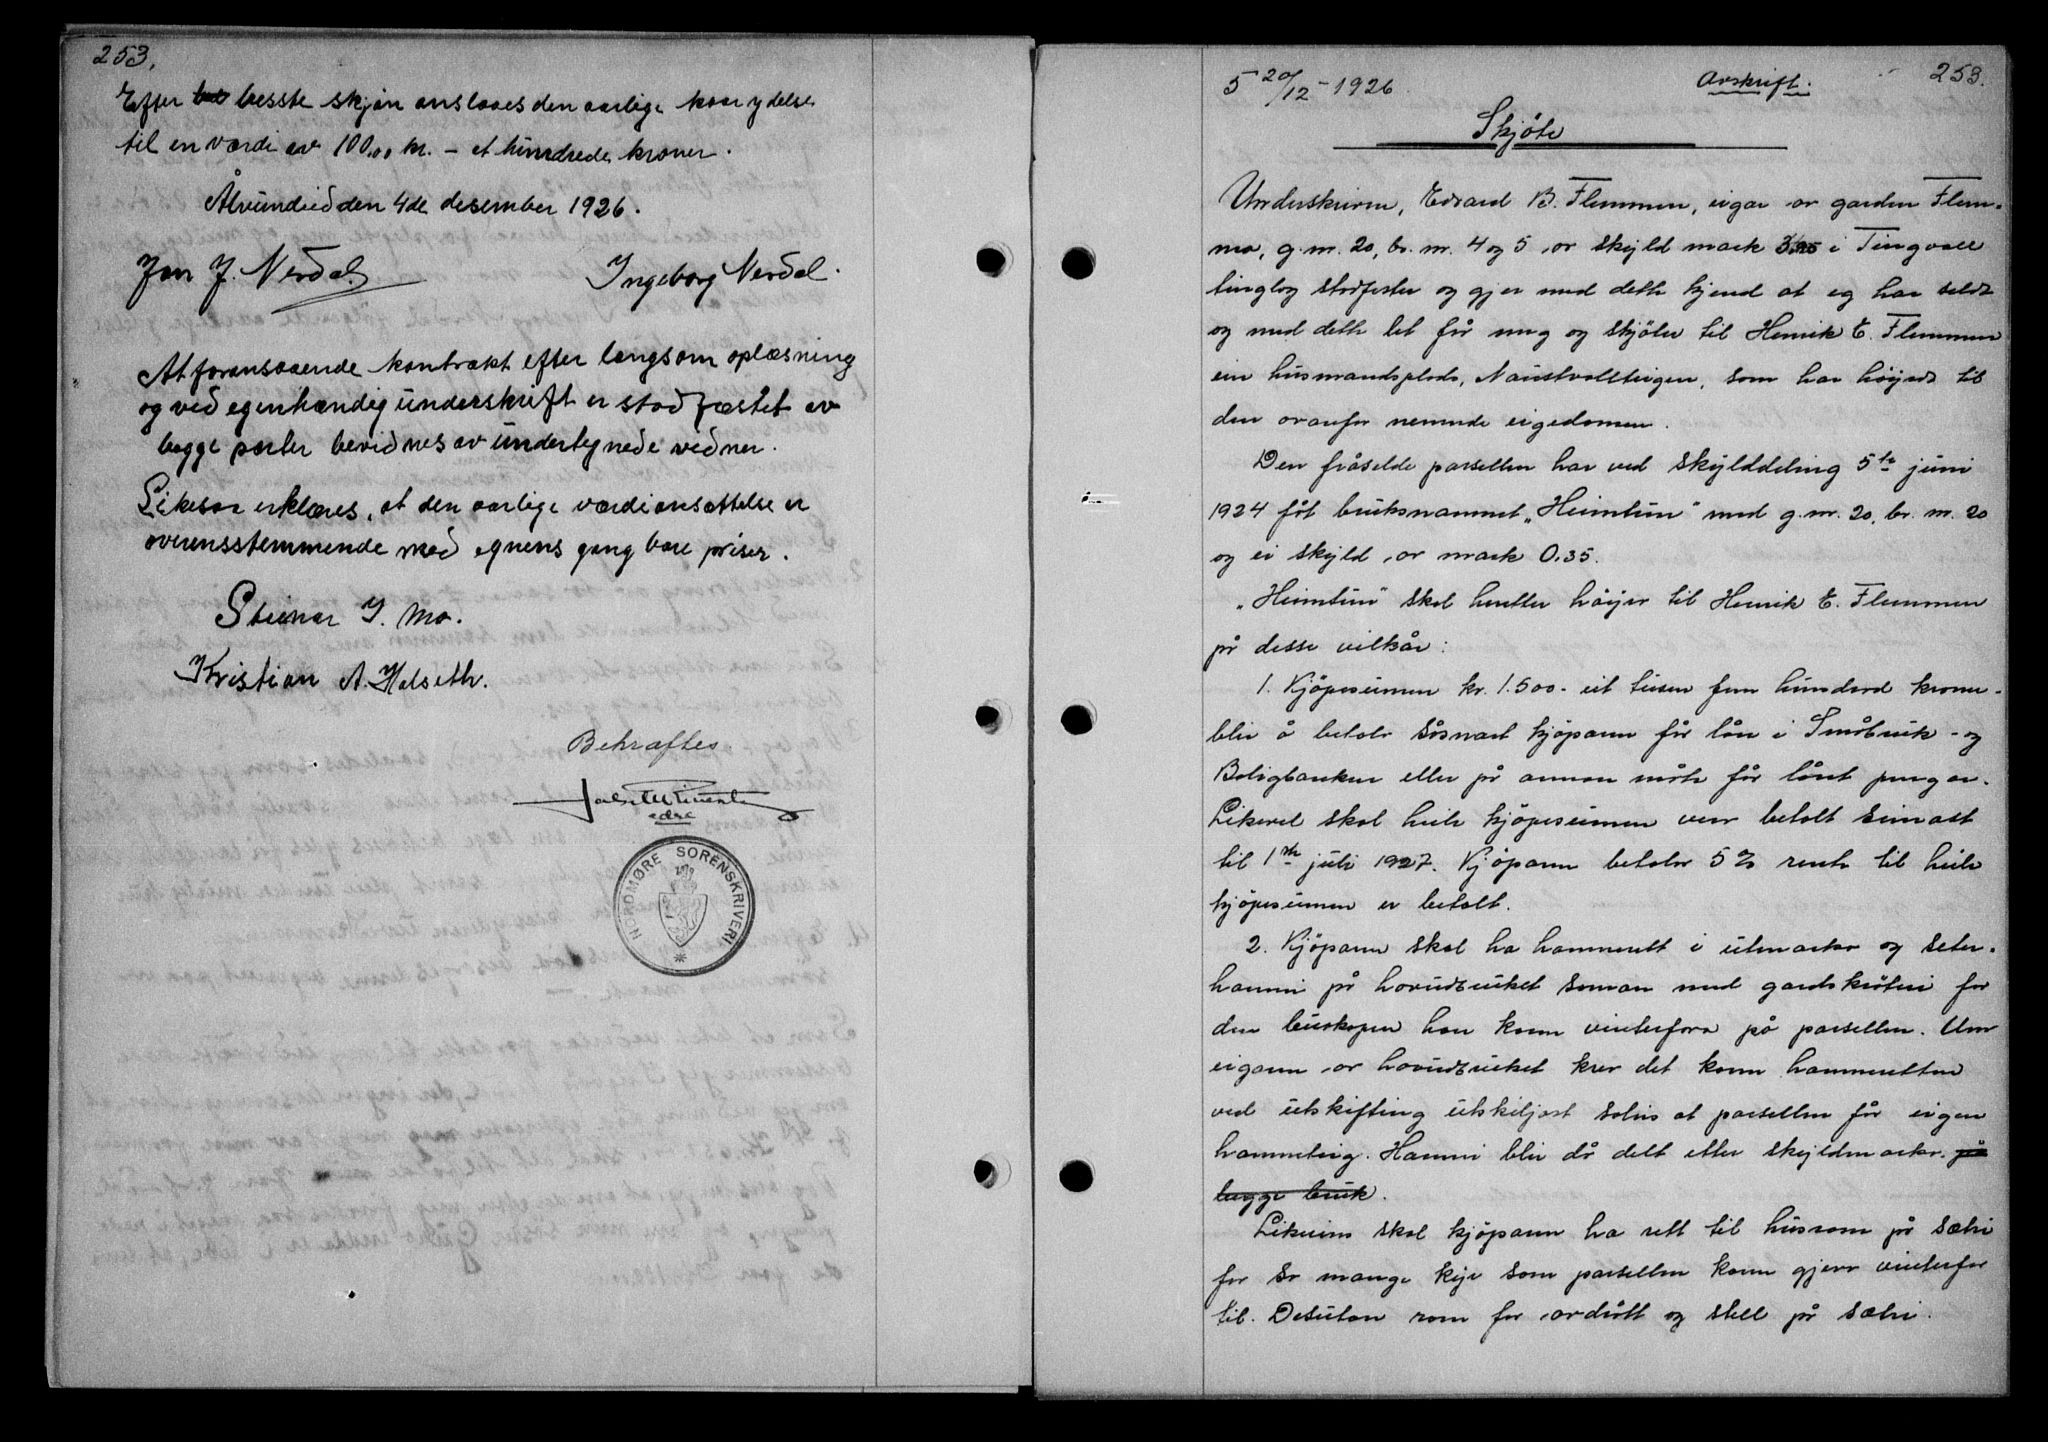 253.
Efter bet besste skjøn anslaaes den aarlige kaarydelse
til en værdi av 100,00 kr. - et hundrede kroner.
Ålvundeid den 4de desember 1926.
Jon J. Nerdal Ingeborg Nerdal.
At foranstaaende kontrakt efter langsom oplæsning
og ved egenhændig underskrift er stadfæstet av
begge parter bevidnes av undertegnede vidner.
Likesaa erklæres, at den aarlige værdiansættelse er
overensstemmende med egnens gangbare priser.
Steinar J. Mo.
Kristian A. Halseth.
Bekræftes.
edre
NORDMØRE SORENSKRIVERI
5 20/12 - 1926. Avskrift. 253.
Skjöte
Underskriven, Edvard B. Flemmen, eigar av garden Flem-
ma, g. nr. 20, br. nr. 4 og 5 av skyld mark i Tingvoll
tinglag stadfester og gjer med dette kjend at eg har seldt
og med dette let frå meg og skjöter til Henrik E. Flemmen
ein husmandsplads, Naustvollteigen, som har höyrdt til
den ovanfor nemnde eigedomen.
Den fråselde parsellen har ved skylddeling 5te juni
1924 fåt bruksnammet „Heimtun" med g. nr. 20, br. nr. 20
og ei skyld av mark 0,35.
„Heimtun" skal heretter höyra til Henrik E. Flemmen
på desse vilkår:
1. Kjöpesumen kr. 1.500.- eit tusen fem hundred kroner -
blir å betala såsnart kjöparen får lån i Småbruk- og
Boligbanken eller på annan måte får lånt pengar.
Likevel skal heile kjöpesumen vera betalt seinast
til 1ste juli 1927. Kjöparen betalar 5 % rente til heile
kjöpesumen er betalt.
2. Kjöparen skal ha hamnerett i utmarka og seter-
hamni på hovudbruket saman med gardskröteri for
den buskapen han kann vinterfora på parsellen. Um
eigaren av hovudbruket krev det kann hamneretten
ved utskifting utskiljast soleis at parsellen får eigen
hamneteig. Hamni blir då delt etter skyldmarka på
begge bruk.
Likeeins skal kjöparen ha rett til husrom på sætri
for so mange kyr som parsellen kann gjeva vinterfor
til. Desutan rom for ardrått og stell på sætri.